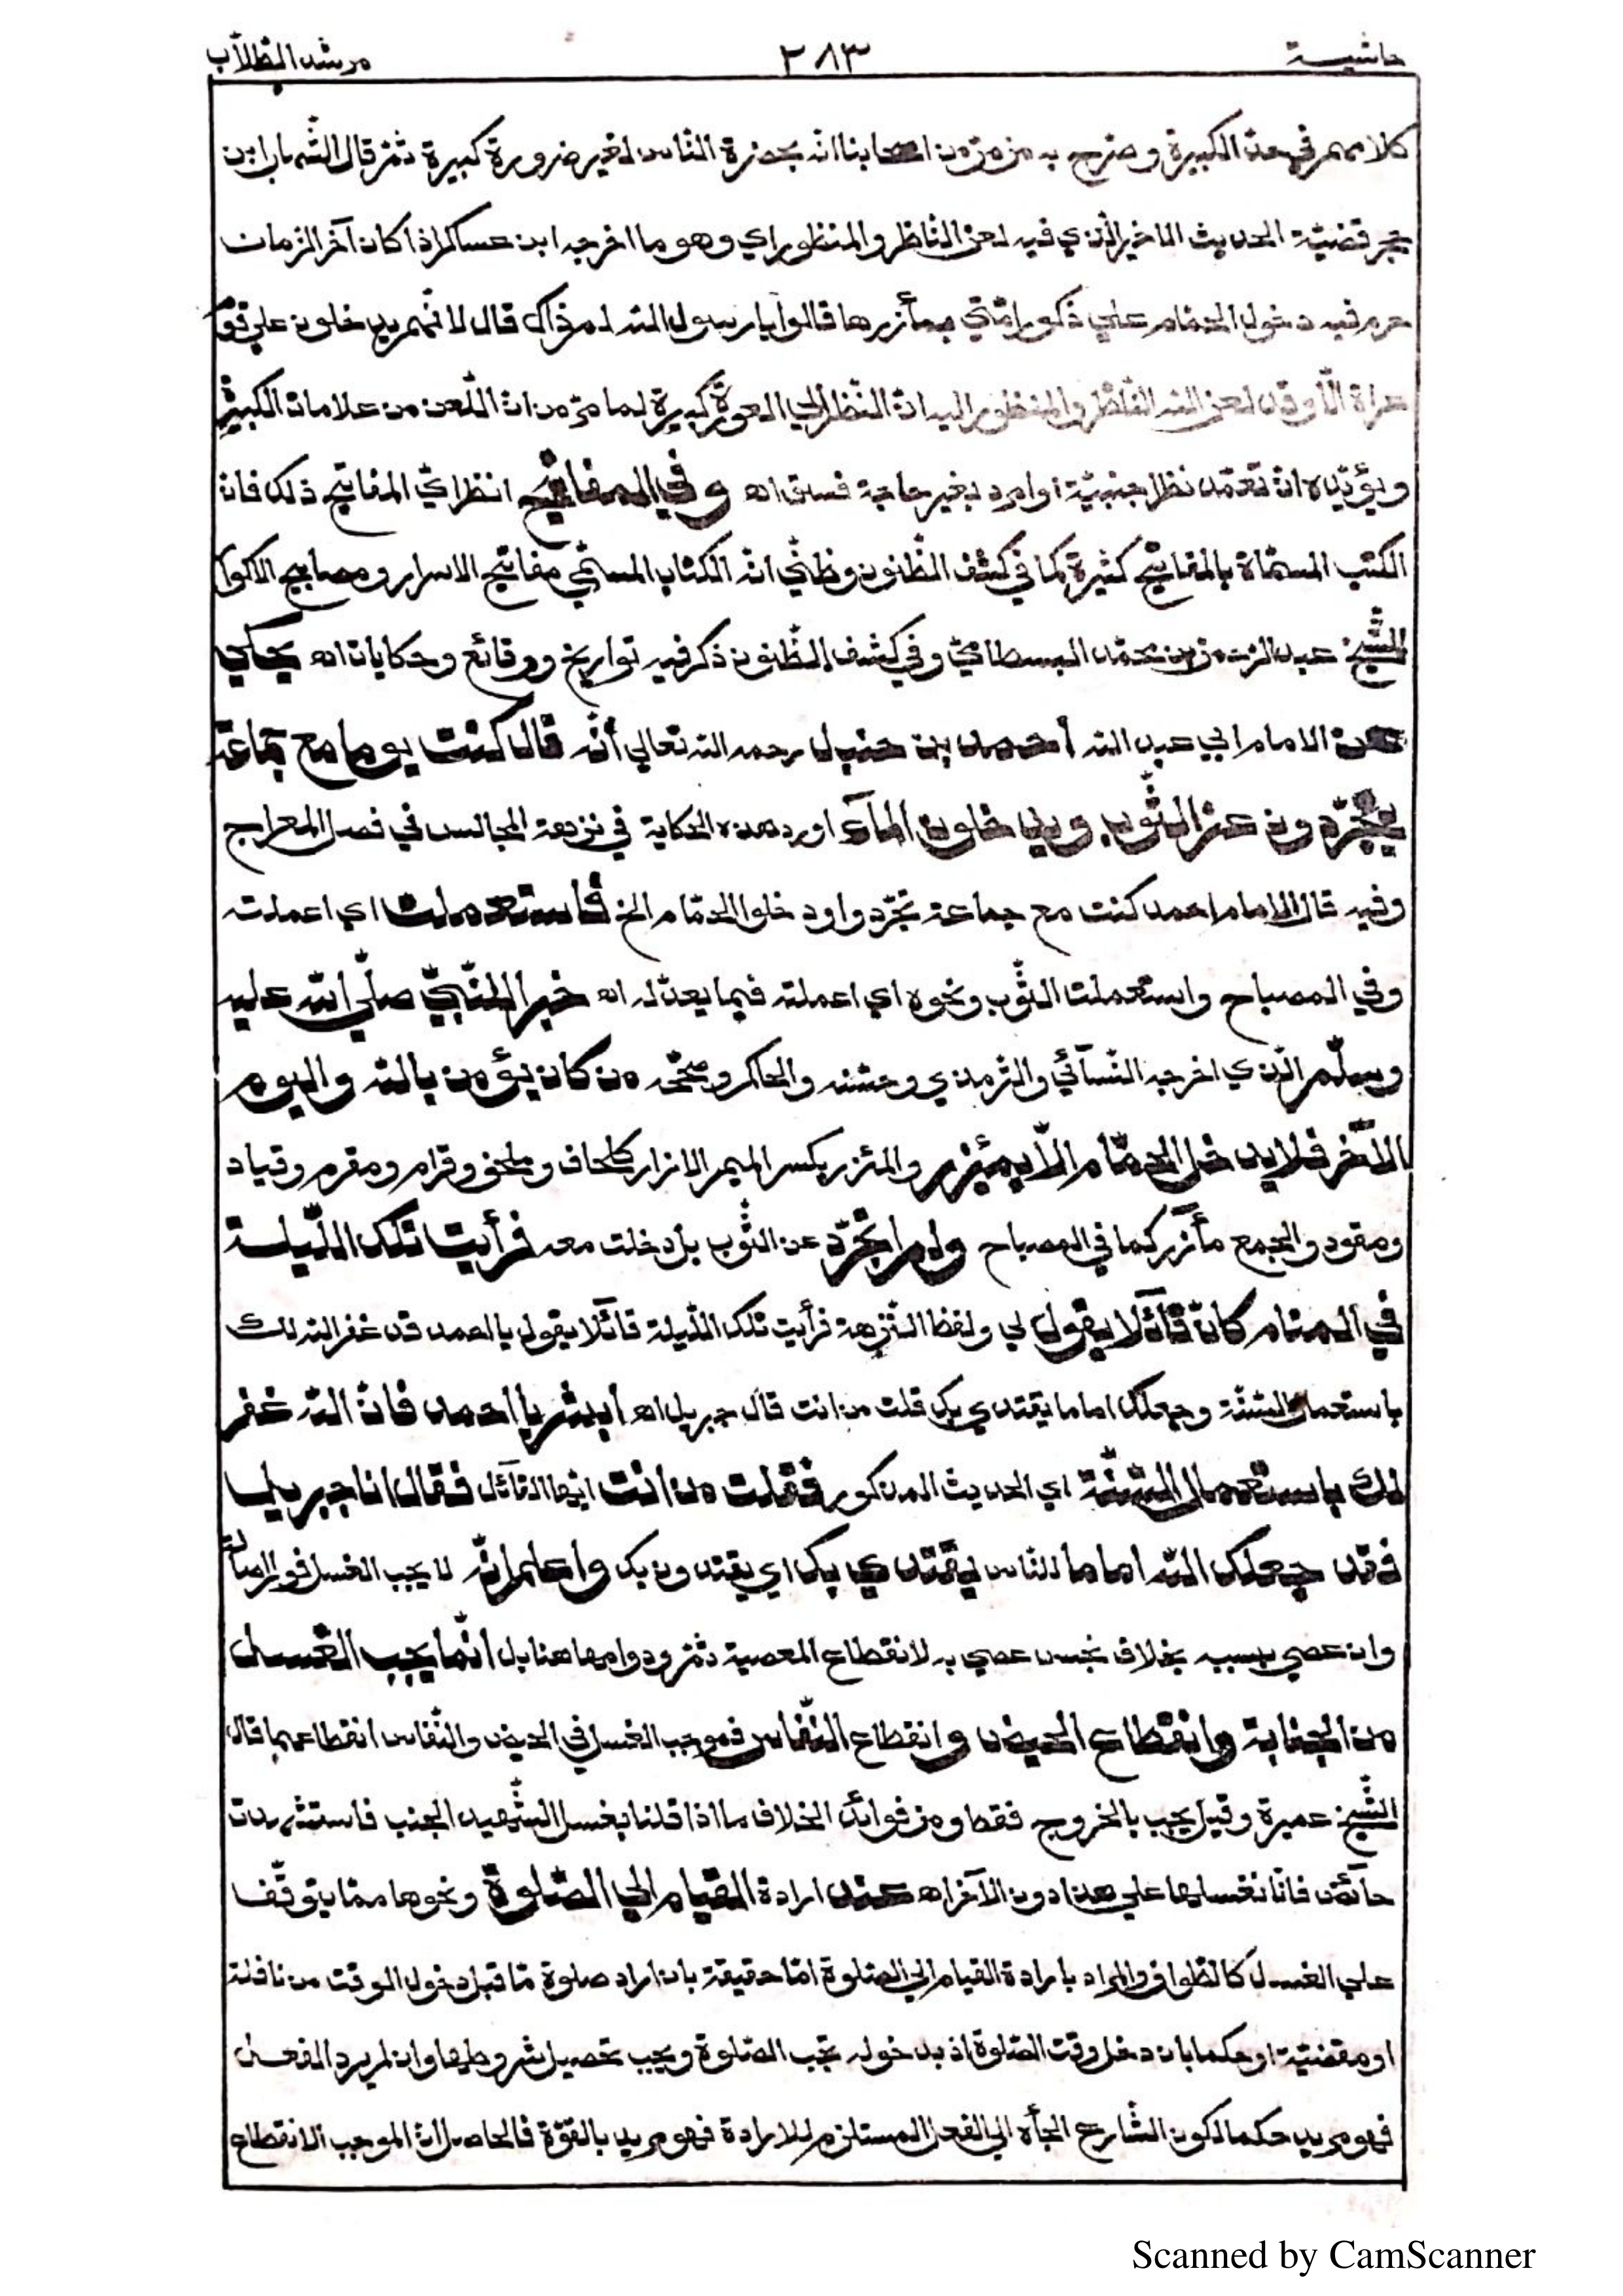 حاشية ٢٨٣ مرشد الطلاب
كلامهم في حد الكبيرة وصرح به من اصحابنا انه بحضرة الناس لغير ضرورة كبيرة ثم قال الشهاب ابن
حجر قضية الحديث الاخير الذي فيه لعن الناظر والمنظور اي وهو ما اخرجه ابن عساكر اذا كان آخر الزمان
حرم فيه دخول الحمام علي ذكور امتي بمأزرها قالوا يا رسول الله لم ذاك قال لانهم يدخلون علي قوم
عراة الا وقد لعن الله الناظر والمنظور اليه ان النظر الي العورة كبيرة لما مر من ان اللعن من علامات الكبيرة
ويؤيده ان تعمد نظر اجنبية او امرد لغير حاجة فسق اه وفي المفاتيح انظر اي المفاتيح ذلك فان
الكتب المسماة بالمفاتيح كثيرة كما في كشف الظنون وظني انه الكتاب المسمي مفاتيح الاسرار ومصابيح الاكوار
للشيخ عبد الرحمن بن محمد البسطامي وفي كشف الظنون ذكر فيه تواريخ ووقائع وحكايات اه يحكي
عن الامام ابي عبد الله أحمد بن حنبل رحمه الله تعالي أنّه قال كنت يوما مع جماعة
يتجرّدون عن الثّوب ويدخلون المآء اورد هذه الحكاية في نزهة المجالس في فصل المعراج
وفيه قال الامام احمد كنت مع جماعة تجرّدوا ودخلوا الحمّام الخ فاستعملت اي اعملت
وفي المصباح واستعملت الثّوب ونحوه اي اعملته فيما يعدّ له اه خبر النّبيّ صلّي الله عليه
وسلّم الّذي اخرجه النّسآئي والترمذي وحسّنه والحاكم وصحّحه من كان يؤمن بالله واليوم
الآخر فلا يدخل الحمّام الّا بمئزر والمئزر بكسر الميم الازار كلحاف وملحف وقرام ومقرم وقياد
ومقود والجمع مآزر كما في المصباح ولم اتجرّد عن الثّوب بل دخلت معه فرأيت تلك اللّيلة
في المنام كانّ قآئلا يقول لي ولفظ النّزهة فرأيت تلك اللّيلة قآئلا يقول يا احمد قد غفر الله لك
باستعمال السّنّة وجعلك اماما يقتدي بك قلت من انت قال جبريل اه ابشر يا احمد فانّ الله غفر
لك باستعمال السّنّة اي الحديث المذكور فقلت من انت ايّها القآئل فقال انا جبريل
فقد جعلك الله اماما للنّاس يقتدي بك اي يقتدون بك واعلم انّه لا يجب الغسل فورا اصالة
وان عصي بسببه بخلاف نجس عصي به لانقطاع المعصية ثمّ ودوامها هنا بل انّما يجب الغسل
من الجنابة وانقطاع الحيض وانقطاع النّفاس فموجب الغسل في الحيض والنّفاس انقطاعهما قال
الشّيخ عميرة وقيل يجب بالخروج فقط ومن فوائد الخلاف ما اذا قلنا بغسل الشّهيد الجنب فاستشهدت
حآئض فانّا نغسلها علي هذا دون الآخر اه عند ارادة القيام الي الصّلوة ونحوها ممّا يتوقّف
علي الغسل كالطّواف والمراد بارادة القيام الي الصّلوة امّا حقيقة بان اراد صلوة مّا قبل دخول الوقت من نافلة
او مقضيّة او حكما بان دخل وقت الصّلوة اذ بدخوله تجب الصّلوة ويجب تحصيل شروطها وان لم يرد الفعل
فهو مريد حكما لكون الشّارع الجأه الي الفعل المستلزم للارادة فهو مريد بالقوّة فالحاصل انّ الموجب الانقطاع
Scanned by CamScanner